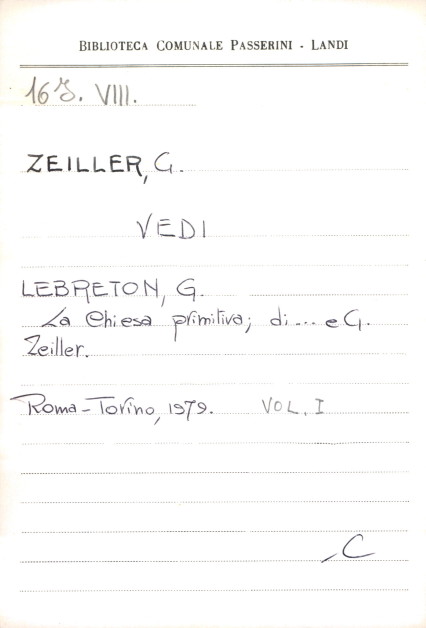 BIBLIOTECA COMUNALE PASSERINI - LANDI
16 J. VIII.
ZEILLER, G.
VEDI
LEBRETON, G.
La Chiesa primitiva; di... e G.
Zeiller.
Roma-Torino, 1979. VOL. I
C